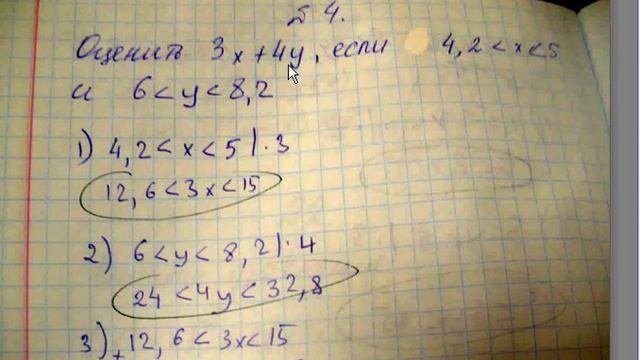 № 4.
Оценить 3x+4y, если 4,2<x<5
и 6<y<8,2
1) 4,2<x<5 |·3
12,6<3x<15
2) 6<y<8,2 |·4
24<4y<32,8
3) + 12,6<3x<15